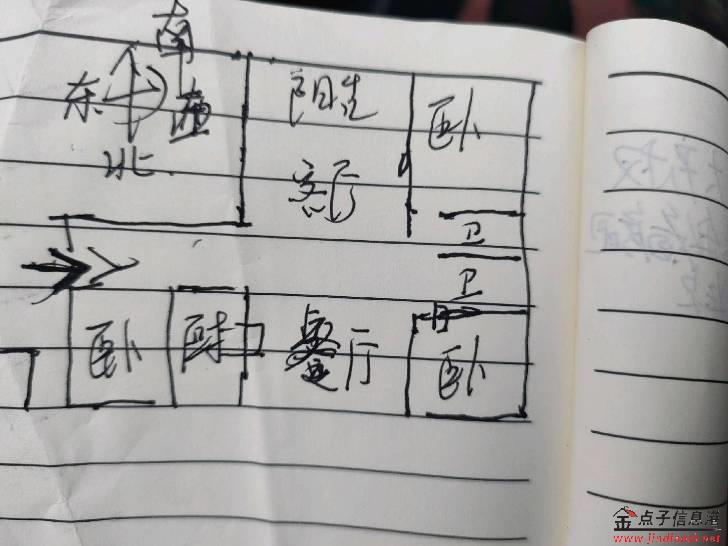 南
东
西
北
阳台
卧
客厅
卫
卫
卧
餐厅
卧
金点子信息港
www.jindiaozi.net